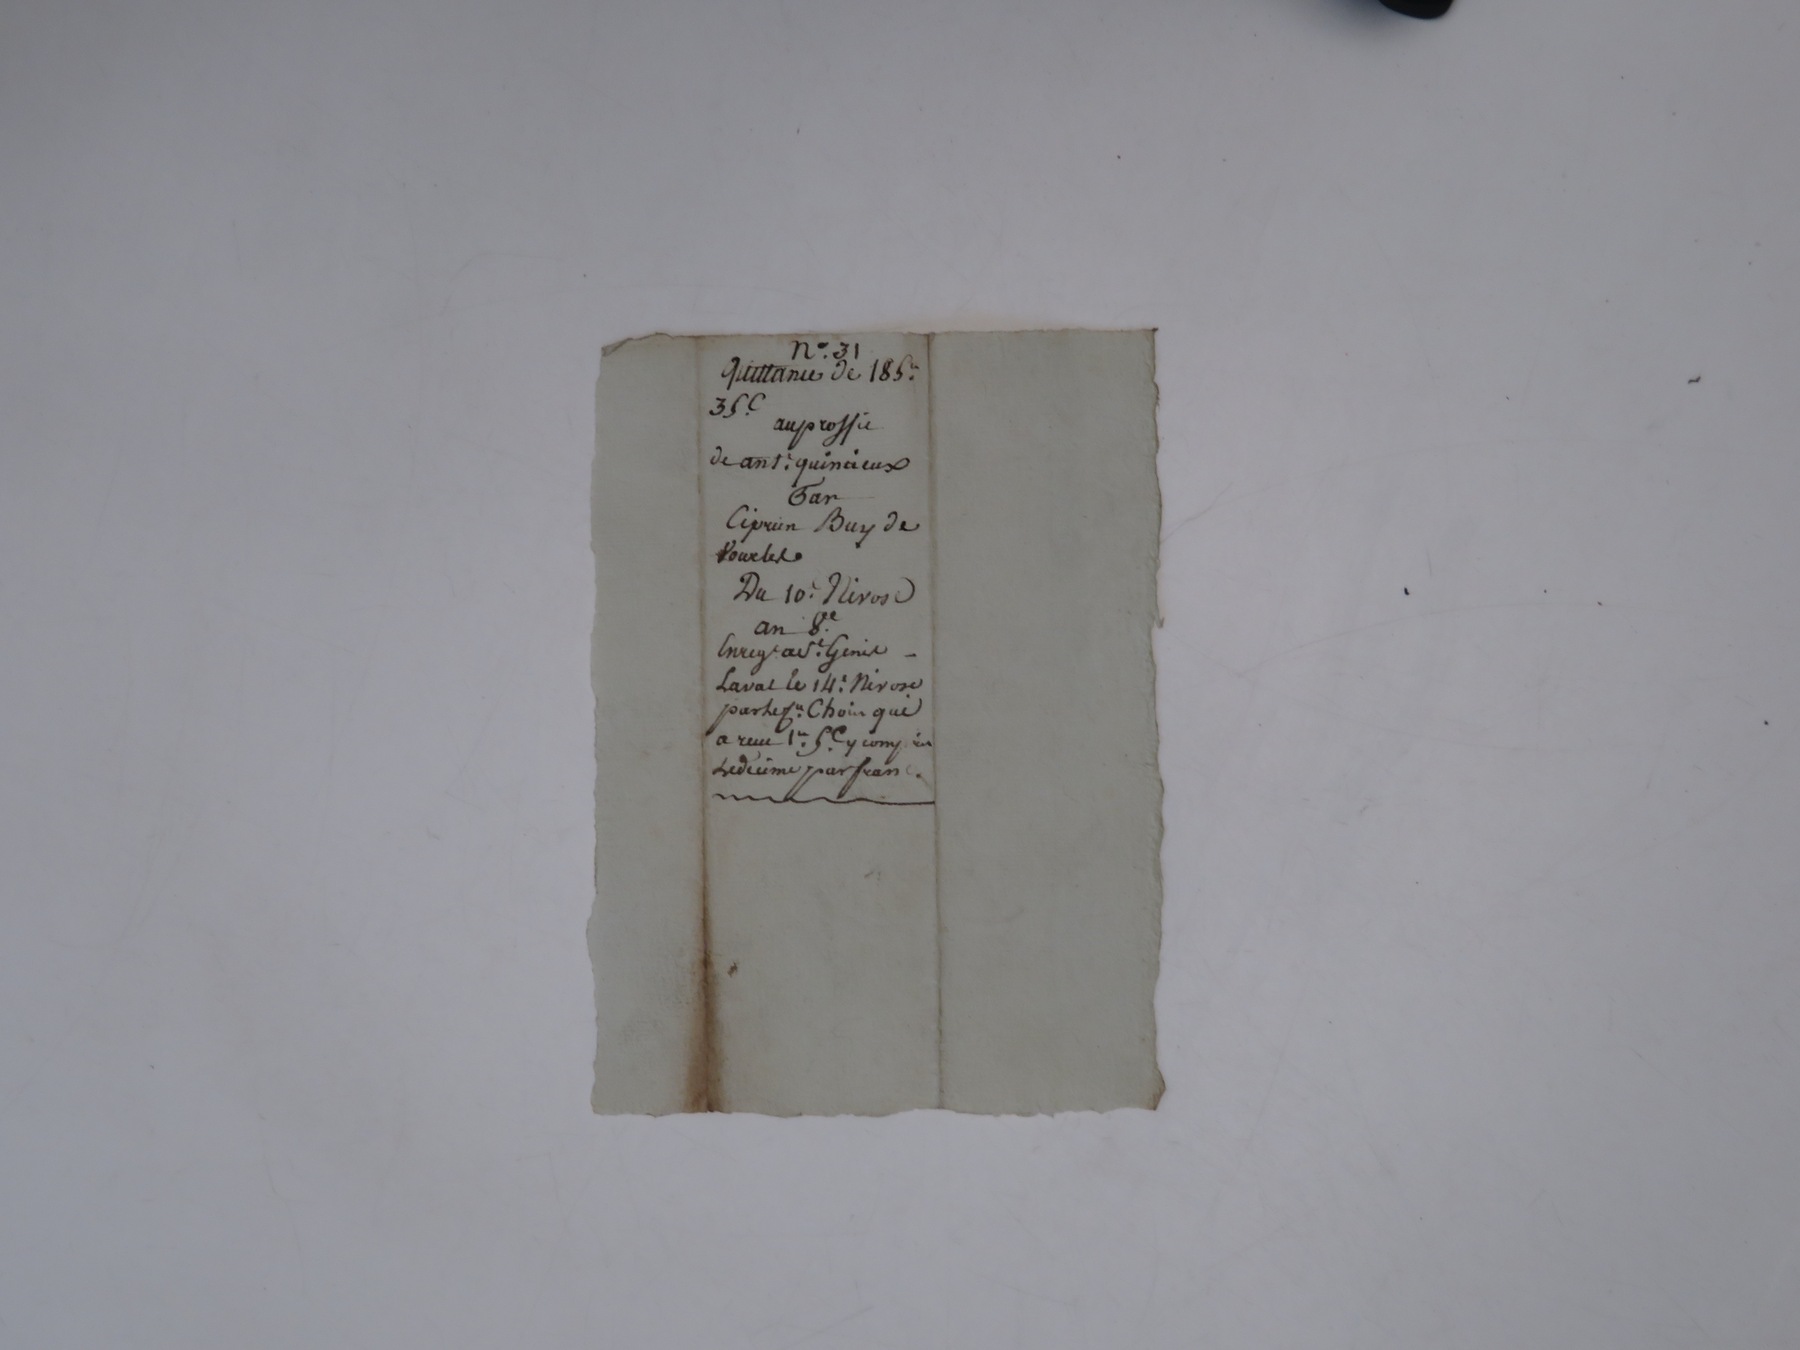 N°. 31
Quittance de 185.#
35.c
au proffit
de ant.e quincieux
Par
Ciprien Buy de
Vourles
Du 10.e Nivose
an 8.e
Enreg.é a S.t Genis
Laval le 14.e Nivose
par le c.n Choin qui
a recu 1.# 5.c y compris
Le decime par franc.